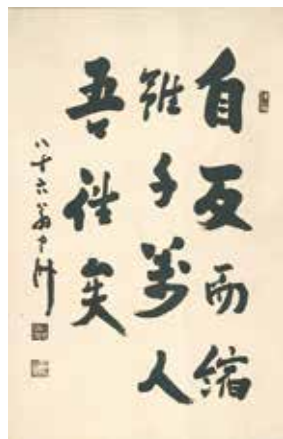 自反而縮
雖千萬人
吾往矣
八十六翁中洲